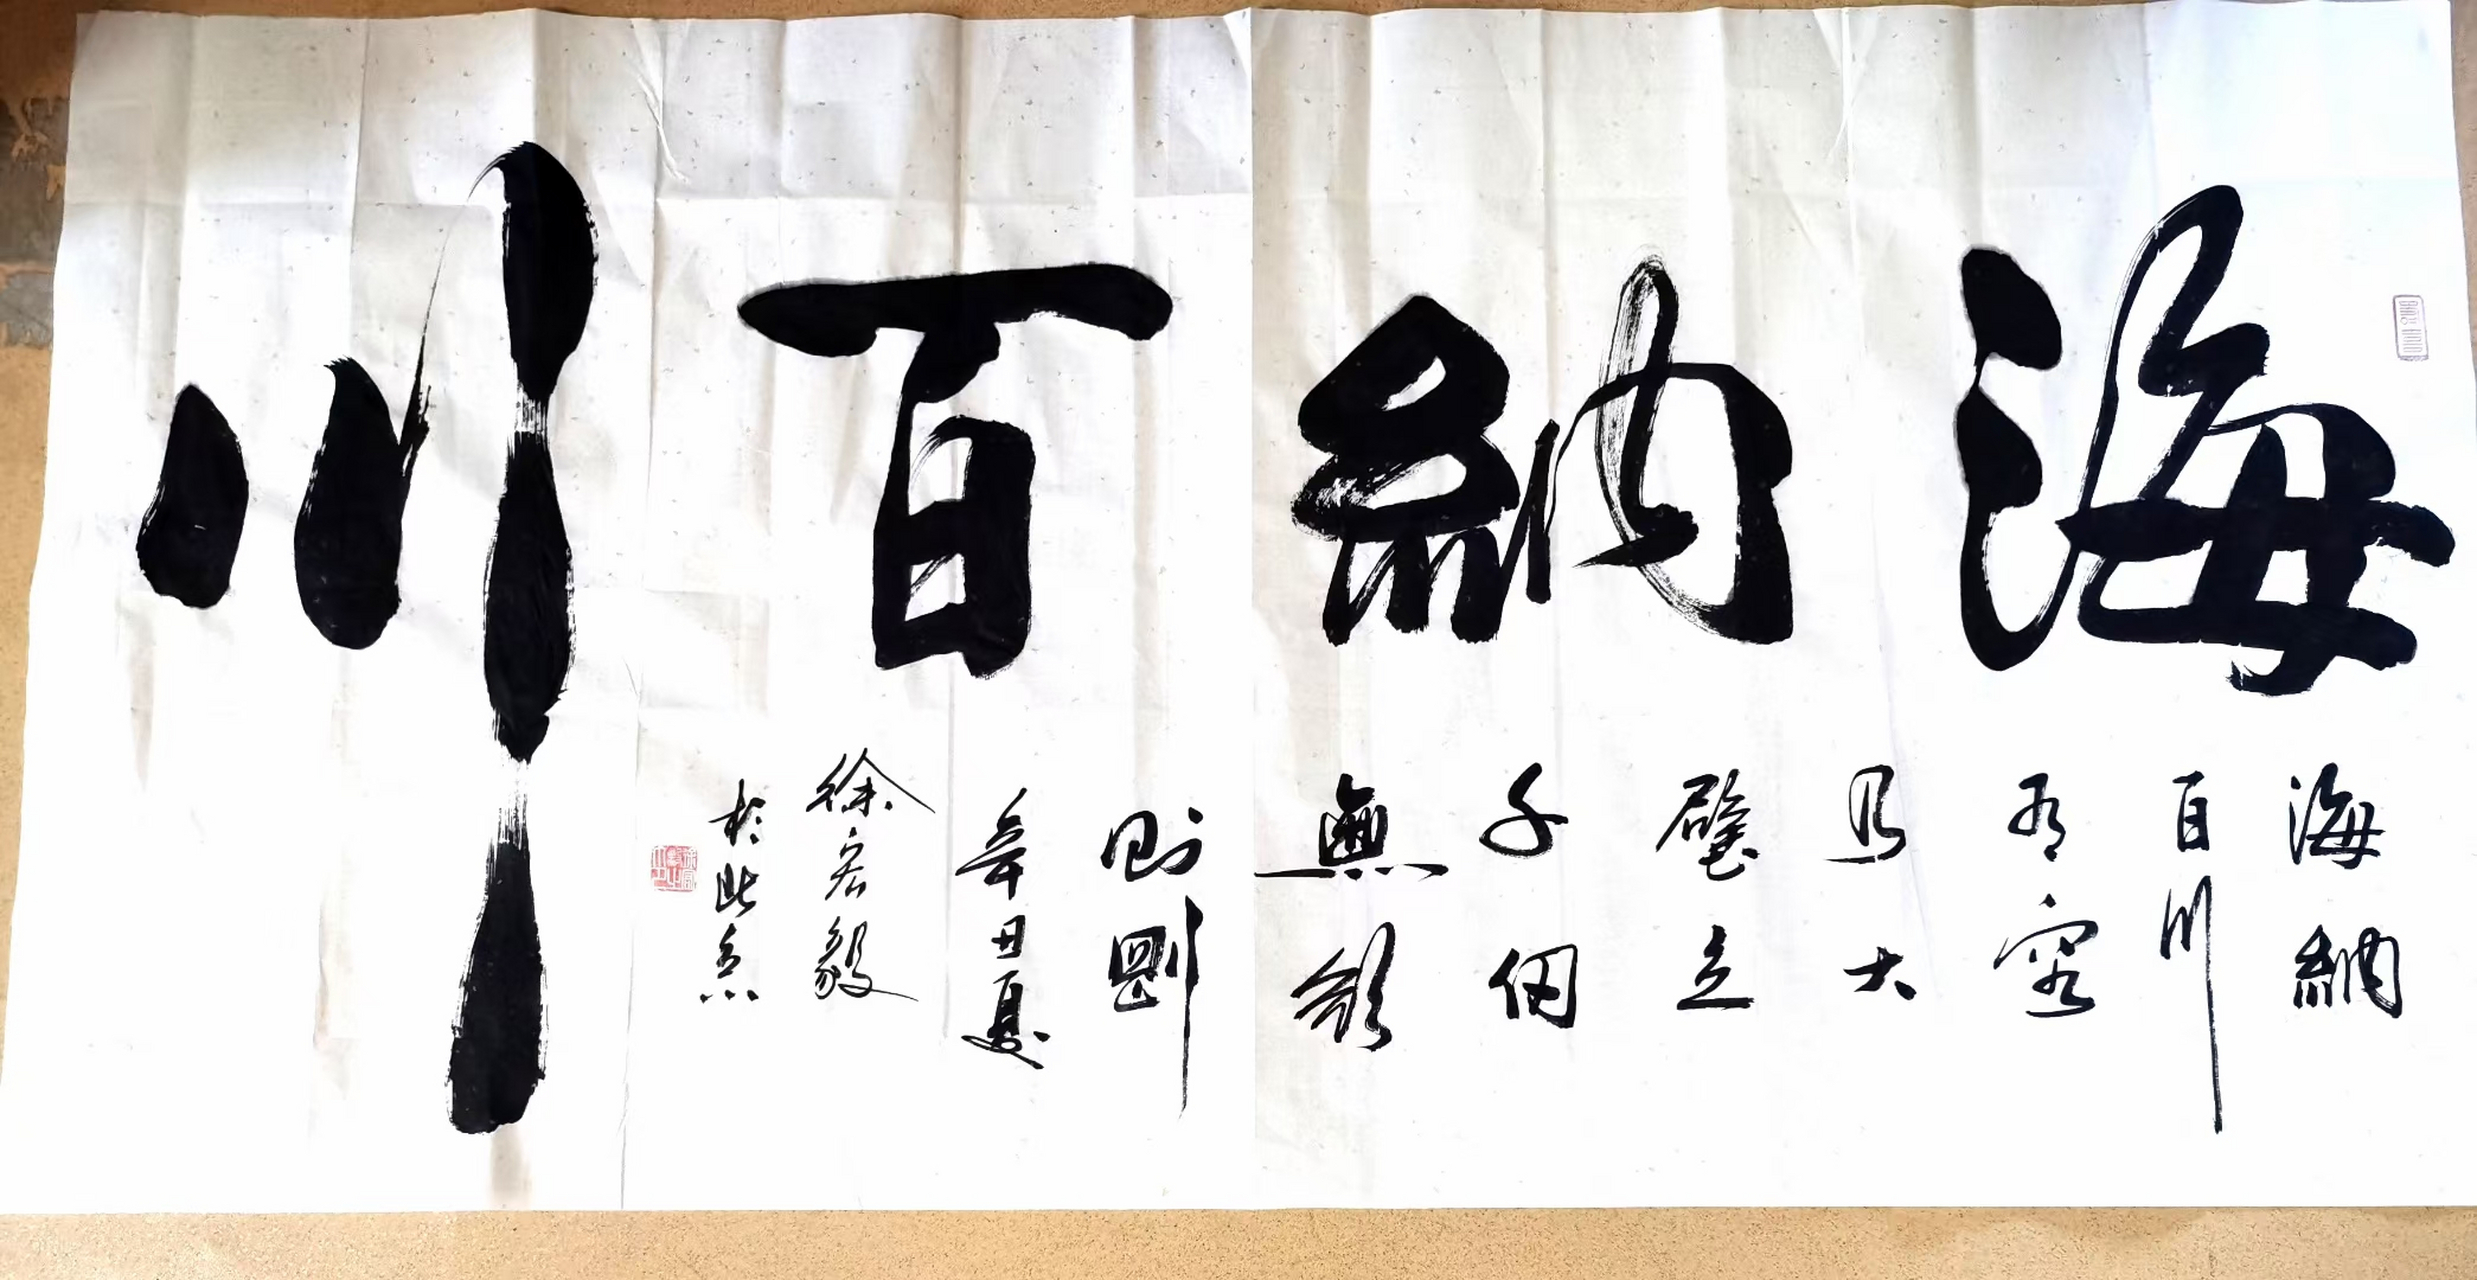 海納百川
海納
百川
有容
乃大
壁立
千仞
無欲
則剛
辛丑夏
徐宏毅
於北京